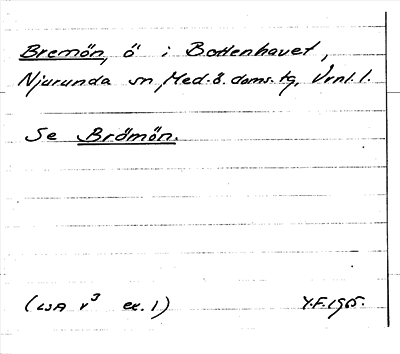 Bremön, ö i Bottenhavet,
Njurunda sn, Med. ö. doms. tg, Vrnl. l.
Se Brämön.
(LSA v³ ex. 1) Y.F. 1965.